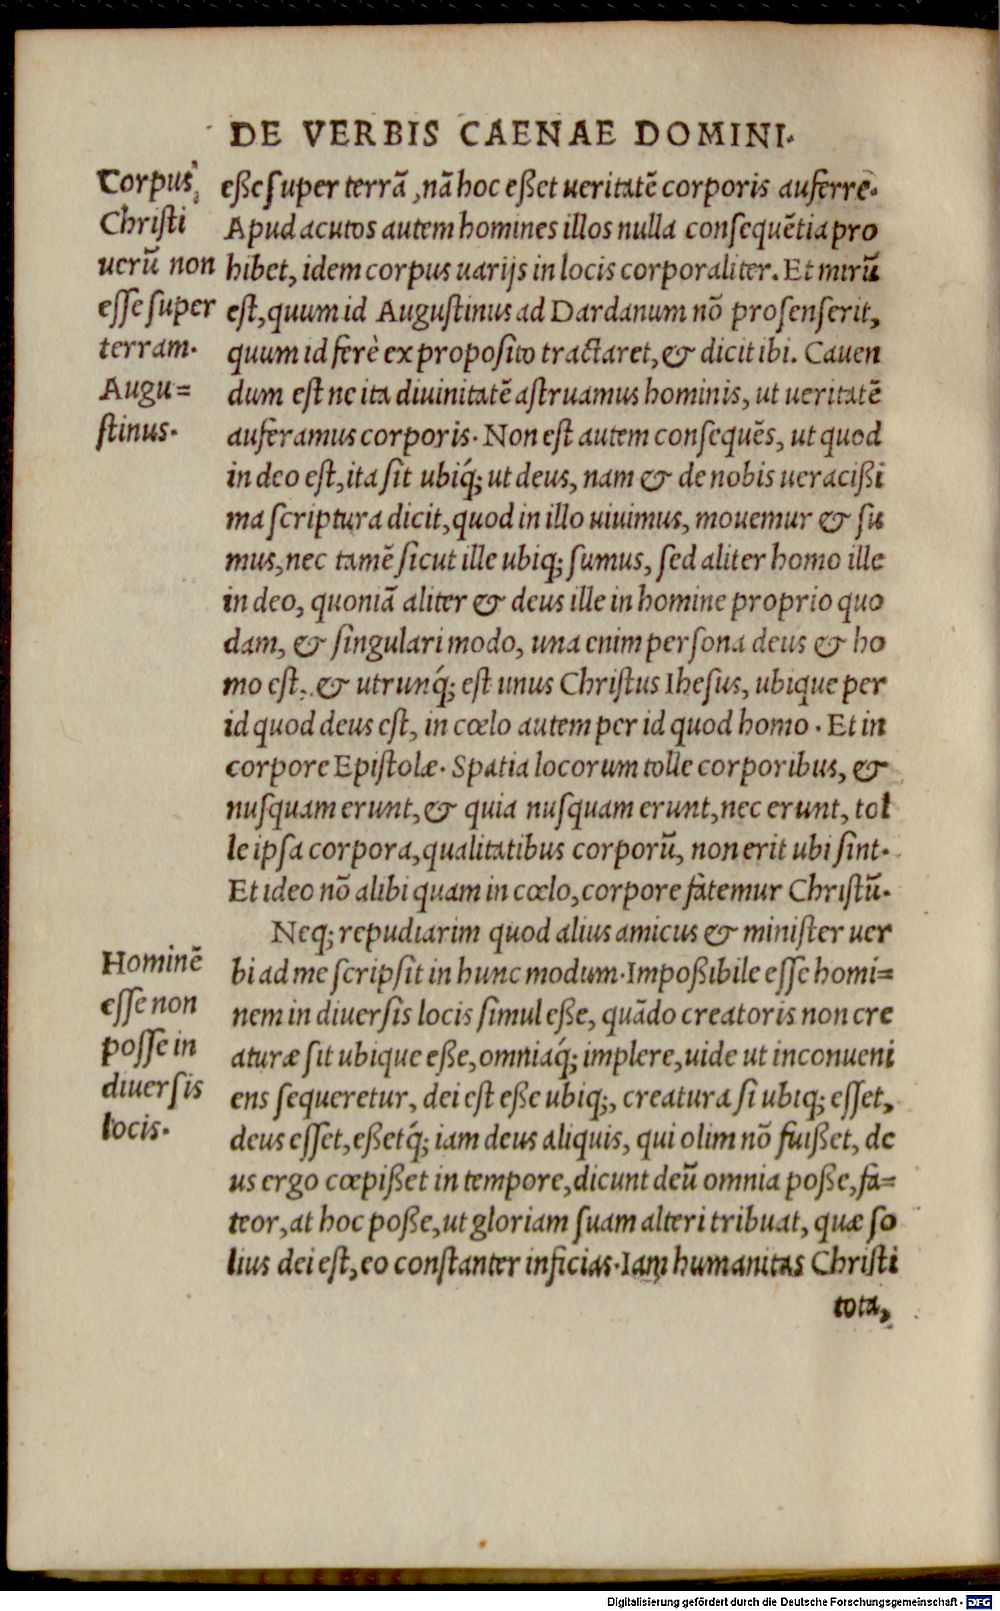 DE VERBIS CAENAE DOMINI.
Corpus
Christi
uerū non
esse super
terram.
Augu=
stinus.
eße super terrā, nā hoc eßet ueritatē corporis auferre.
Apud acutos autem homines illos nulla consequētia pro
hibet, idem corpus uarijs in locis corporaliter. Et mirū
est, quum id Augustinus ad Dardanum nō prosenserit,
quum id ferè ex proposito tractaret, & dicit ibi. Cauen
dum est ne ita diuinitatē astruamus hominis, ut ueritatē
auferamus corporis. Non est autem consequēs, ut quod
in deo est, ita sit ubiq́; ut deus, nam & de nobis ueracißi
ma scriptura dicit, quod in illo uiuimus, mouemur & su
mus, nec tamē sicut ille ubiq; sumus, sed aliter homo ille
in deo, quoniā aliter & deus ille in homine proprio quo
dam, & singulari modo, una enim persona deus & ho
mo est. & utrunq́; est unus Christus Ihesus, ubique per
id quod deus est, in cœlo autem per id quod homo. Et in
corpore Epistolæ. Spatia locorum tolle corporibus, &
nusquam erunt, & quia nusquam erunt, nec erunt, tol
le ipsa corpora, qualitatibus corporū, non erit ubi sint.
Et ideo nō alibi quam in cœlo, corpore fatemur Christū.
Hominē
esse non
posse in
diuersis
locis.
Neq; repudiarim quod alius amicus & minister uer
bi ad me scripsit in hunc modum. Impoßibile esse homi=
nem in diuersis locis simul eße, quādo creatoris non cre
aturæ sit ubique eße, omniaq́; implere, uide ut inconueni
ens sequeretur, dei est eße ubiq;, creatura si ubiq; esset,
deus esset, eßetq́; iam deus aliquis, qui olim nō fuißet, de
us ergo cœpißet in tempore, dicunt deū omnia poße, fa=
teor, at hoc poße, ut gloriam suam alteri tribuat, quæ so
lius dei est, eo constanter inficias. Iam humanitas Christi
tota,
Digitalisierung gefördert durch die Deutsche Forschungsgemeinschaft - DFG